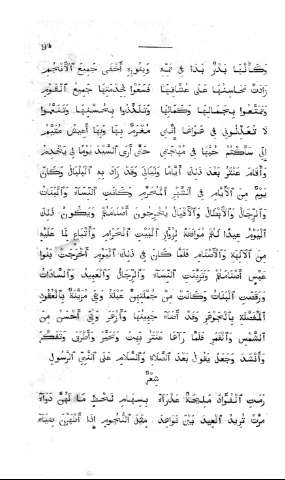 ٩٥
وكأنها بدر بدا في تمه وبنوره أخفى جميع الأنجم
زادت محاسنها على عشاقها فسعوا لخدمتها جميع القوم
وتمتعوا بجمالها وكمالها وتلذذوا بحسنها وتنعموا
لا تعذلوني في هواها إنني مغرم بها وبها أعيش متيم
إني سأكتم حبها في مهجتي حتى أرى السعد يوما لي يخدم
وأقام عنتر بعد ذلك أياما وليالي وقد زاد به البلبال وكان
يوم من الأيام في الشهر المحرم وكانت النساء والبنات
والرجال والأبطال والأقيال يخرجون أصنامهم ويكون ذلك
اليوم عيدا لهم موافقة لزوار البيت الحرام وأتباع لما عليه
من الآلهة والأصنام فلما كان في ذلك اليوم أخرجت بنوا
عبس أصنامهم وتزينت النساء والرجال والعبيد والسادات
ورقصت البنات وكانت من جملتهن عبلة وهي مزينة بالعقود
المفصلة بالجوهر وقد أضاء جبينها وأزهر وهي أحسن من
الشمس والقمر فلما رآها عنتر بهت وتحير وأطرق وتفكر
وأنشد وجعل يقول بعد الصلاة والسلام على النبي الرسول
شعر
رمت الفؤاد مليحة عذراء بسهام لحظ ما لهن دواء
مرت تريد العيد بين نواعد مثل النجوم إذا أظهرن ضياء